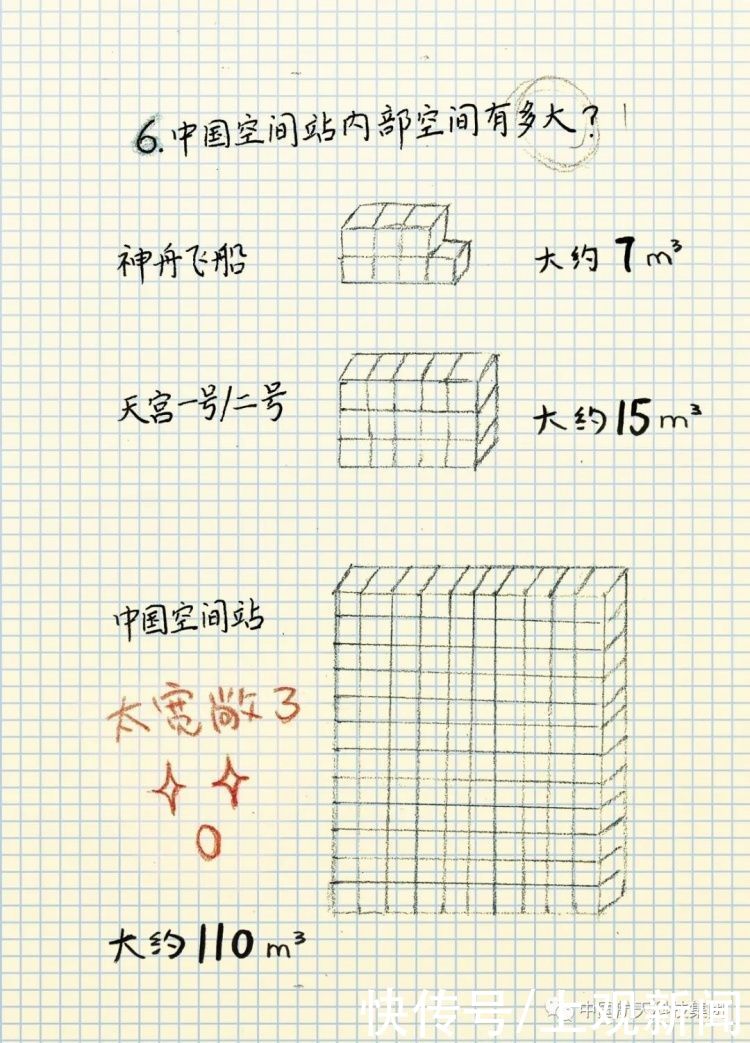 6.中国空间站内部空间有多大?
神舟飞船
大约7m³
天宫一号/二号
大约15m³
中国空间站
太宽敞了
大约110m³
中国航天科技集团
快传号/上观新闻